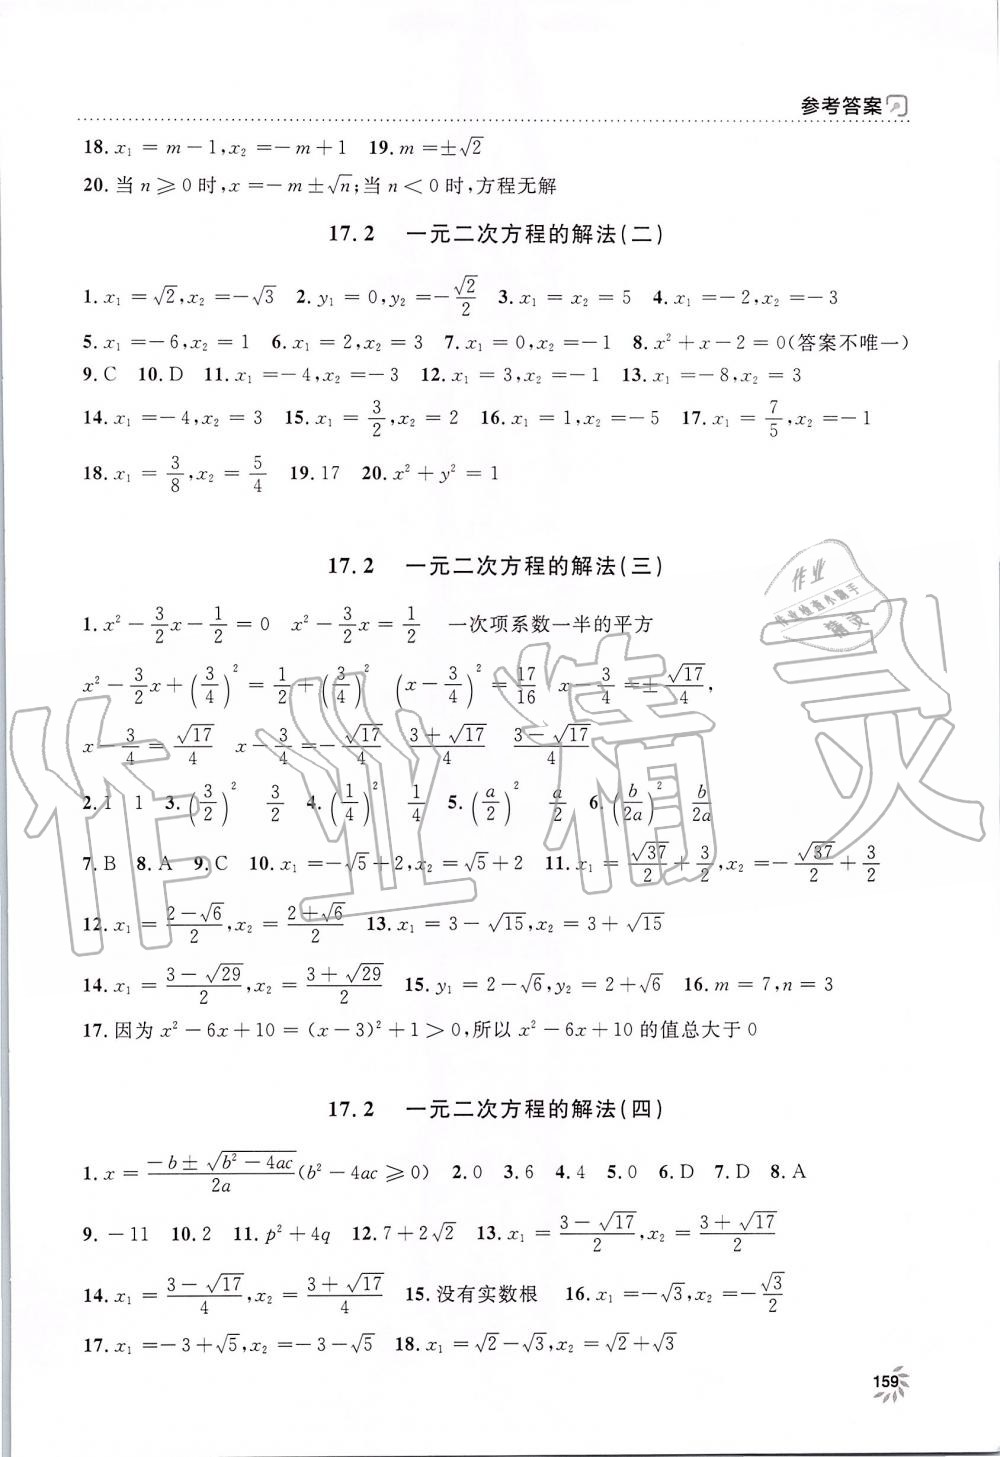 参考答案
18. x₁ = m－1, x₂ =－m＋1　19. m =±√2
20. 当 n ⩾ 0 时, x =－m±√n; 当 n < 0 时, 方程无解
17.2　一元二次方程的解法(二)
1. x₁ = √2, x₂ =－√3　2. y₁ = 0, y₂ =－√2/2　3. x₁ = x₂ = 5　4. x₁ =－2, x₂ =－3
5. x₁ =－6, x₂ = 1　6. x₁ = 2, x₂ = 3　7. x₁ = 0, x₂ =－1　8. x²＋x－2 = 0(答案不唯一)
9. C　10. D　11. x₁ =－4, x₂ =－3　12. x₁ = 3, x₂ =－1　13. x₁ =－8, x₂ = 3
14. x₁ =－4, x₂ = 3　15. x₁ = 3/2, x₂ = 2　16. x₁ = 1, x₂ =－5　17. x₁ = 7/5, x₂ =－1
18. x₁ = 3/8, x₂ = 5/4　19. 17　20. x²＋y² = 1
17.2　一元二次方程的解法(三)
1. x²－3/2x－1/2 = 0　x²－3/2x = 1/2　一次项系数一半的平方
x²－3/2x＋(3/4)² = 1/2＋(3/4)²　(x－3/4)² = 17/16　x－3/4 =±√17/4,
x－3/4 = √17/4　x－3/4 =－√17/4　(3＋√17)/4　(3－√17)/4
2. 1　1　3. (3/2)²　3/2　4. (1/4)²　1/4　5. (a/2)²　a/2　6. (b/2a)²　b/2a
7. B　8. A　9. C　10. x₁ =－√5＋2, x₂ = √5＋2　11. x₁ = √37/2＋3/2, x₂ =－√37/2＋3/2
12. x₁ = (2－√6)/2, x₂ = (2＋√6)/2　13. x₁ = 3－√15, x₂ = 3＋√15
14. x₁ = (3－√29)/2, x₂ = (3＋√29)/2　15. y₁ = 2－√6, y₂ = 2＋√6　16. m = 7, n = 3
17. 因为 x²－6x＋10 = (x－3)²＋1 > 0, 所以 x²－6x＋10 的值总大于 0
17.2　一元二次方程的解法(四)
1. x = (－b±√(b²－4ac))/2a (b²－4ac ⩾ 0)　2. 0　3. 6　4. 4　5. 0　6. D　7. D　8. A
9. －11　10. 2　11. p²＋4q　12. 7＋2√2　13. x₁ = (3－√17)/2, x₂ = (3＋√17)/2
14. x₁ = (3－√17)/4, x₂ = (3＋√17)/4　15. 没有实数根　16. x₁ =－√3, x₂ =－√3/2
17. x₁ =－3＋√5, x₂ =－3－√5　18. x₁ = √2－√3, x₂ = √2＋√3
159
作业
作业检查小助手
精灵
作业精灵